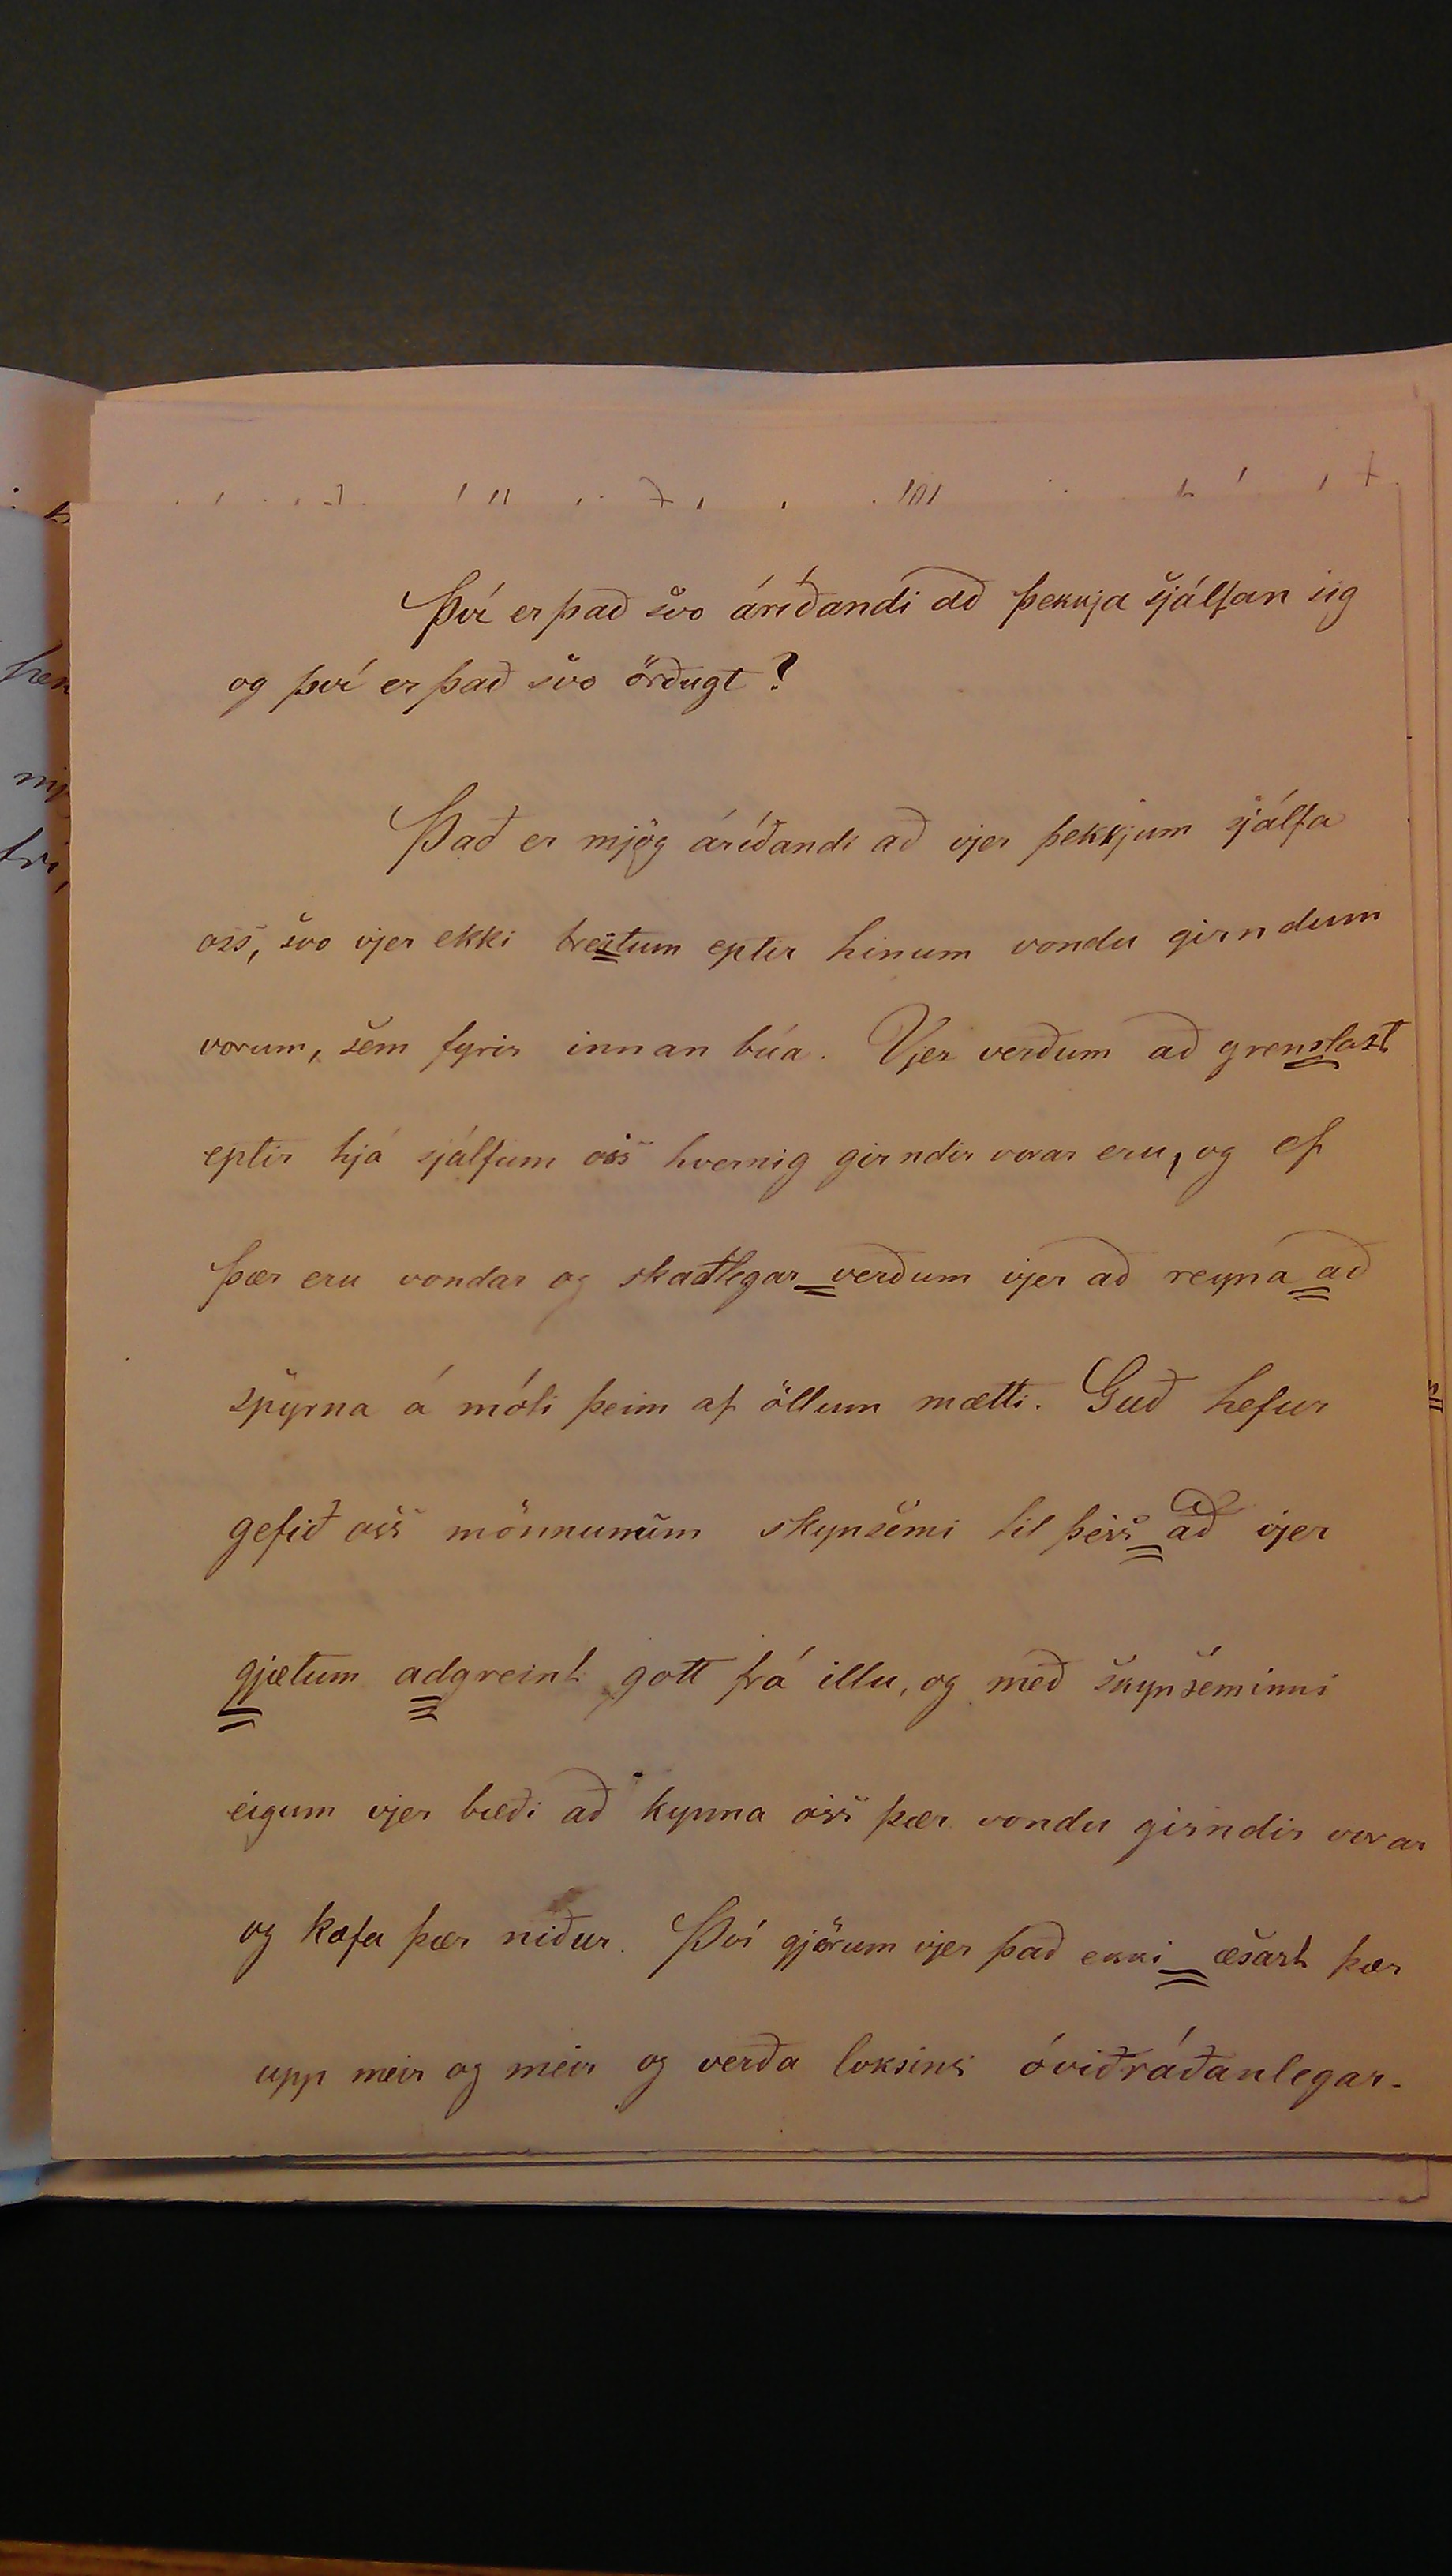 Því er það svo áríðandi að þekkja sjálfan sig
og því er það svo örðugt?
Það er mjög áríðandi að vjer þekkjum sjálfa
oss, svo vjer ekki breitum eptir hinum vondu girndum
vorum, sem fyrir innan búa. Vjer verðum að grenslast
eptir hjá sjálfum oss hvernig girndir vorar eru, og ef
þær eru vondar og skaðlegar verðum vjer að reyna að
spyrna á móti þeim af öllum mætti. Guð hefur
gefið oss mönnunum skynsemi til þess að vjer
gjætum adgreint gott frá illu, og með skynseminni
eigum vjer bæði að kynna oss þær vondu girndir vorar
og kæfa þær niður. Því gjörum vjer það ekki æsast þær
upp meir og meir og verða loksins óviðráðanlegar.